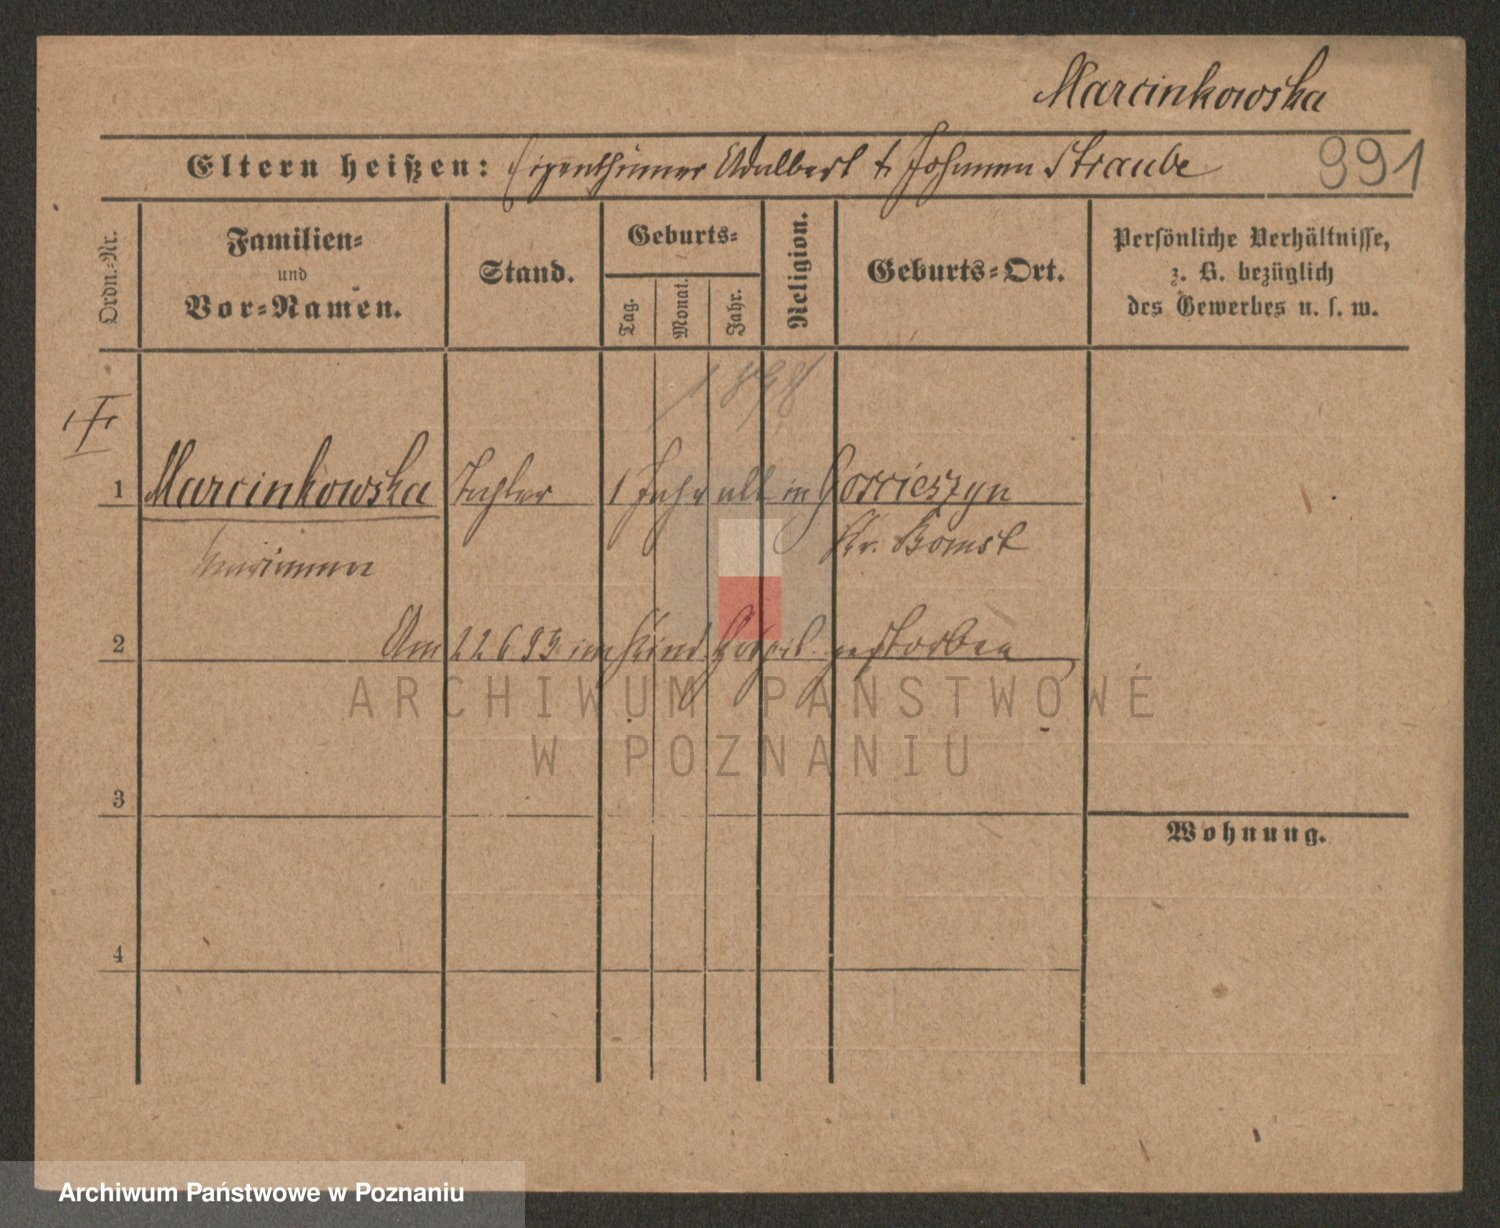 Marcinkowska
Eltern heißen: Eigenthümer Adalbert & Johanna Straube
991
Ordn.-Nr.
Familien-
und
Vor-Namen.
Stand.
Geburts-
Tag.
Monat.
Jahr.
Religion.
Geburts-Ort.
Persönliche Verhältnisse,
z. B. bezüglich
des Gewerbes u. s. w.
1 Marcinkowska Tochter 1 Jahr alt in Gorcieszyn
Marianna Kr. Bomst
2 Am 22 6 93 im Kind Hospil gestorben
ARCHIWUM PAŃSTWOWE
W POZNANIU
3
Wohnung.
4
Archiwum Państwowe w Poznaniu